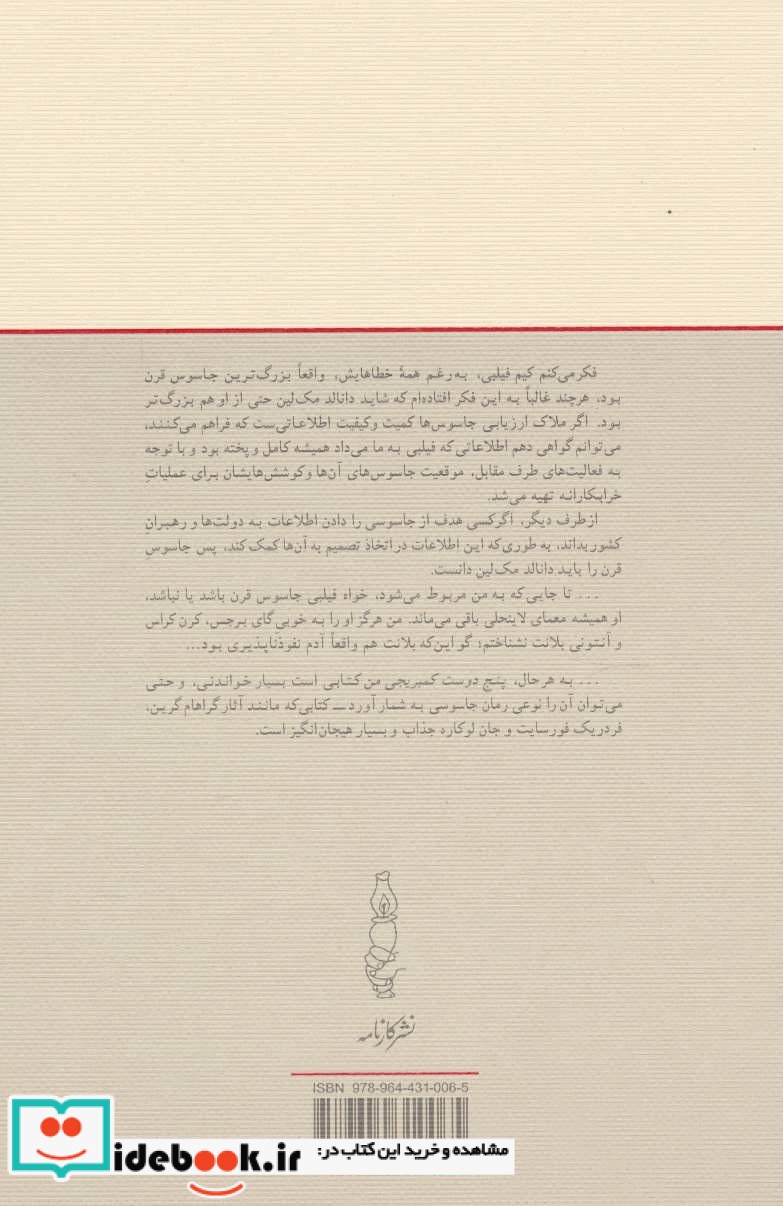 فکر می‌کنم کیم فیلبی، به‌رغم همهٔ خطاهایش، واقعاً بزرگ‌ترین جاسوس قرن
بود، هرچند غالباً به این فکر افتاده‌ام که شاید دانالد مک‌لین حتی از او هم بزرگ‌تر
بود. اگر ملاک ارزیابی جاسوس‌ها کمیت و کیفیت اطلاعاتی‌ست که فراهم می‌کنند،
می‌توانم گواهی دهم اطلاعاتی که فیلبی به ما می‌داد همیشه کامل و پخته بود و با توجه
به فعالیت‌های طرف مقابل، موقعیت جاسوس‌های آن‌ها و کوشش‌هایشان برای عملیاتِ
خرابکارانه تهیه می‌شد.
از طرف دیگر، اگر کسی هدف از جاسوسی را دادن اطلاعات به دولت‌ها و رهبرانِ
کشور بداند، به طوری که این اطلاعات در اتخاذ تصمیم به آن‌ها کمک کند، پس جاسوسِ
قرن را باید دانالد مک‌لین دانست.
... تا جایی که به من مربوط می‌شود، خواه فیلبی جاسوس قرن باشد یا نباشد،
او همیشه معمای لاینحلی باقی می‌ماند. من هرگز او را به خوبی گای برجس، کرن کراس
و آنتونی بلانت نشناختم؛ گو این‌که بلانت هم واقعاً آدم نفوذناپذیری بود...
... به هر حال، پنج دوست کمبریجی من کتابی است بسیار خواندنی، و حتی
می‌توان آن را نوعی رمان جاسوسی به شمار آورد ــ کتابی که مانند آثار گراهام گرین،
فردریک فورسایت و جان لوکاره جذاب و بسیار هیجان‌انگیز است.
نشر کارنامه
ISBN 978-964-431-006-5
مشاهده و خرید این کتاب در:
idebook.ir